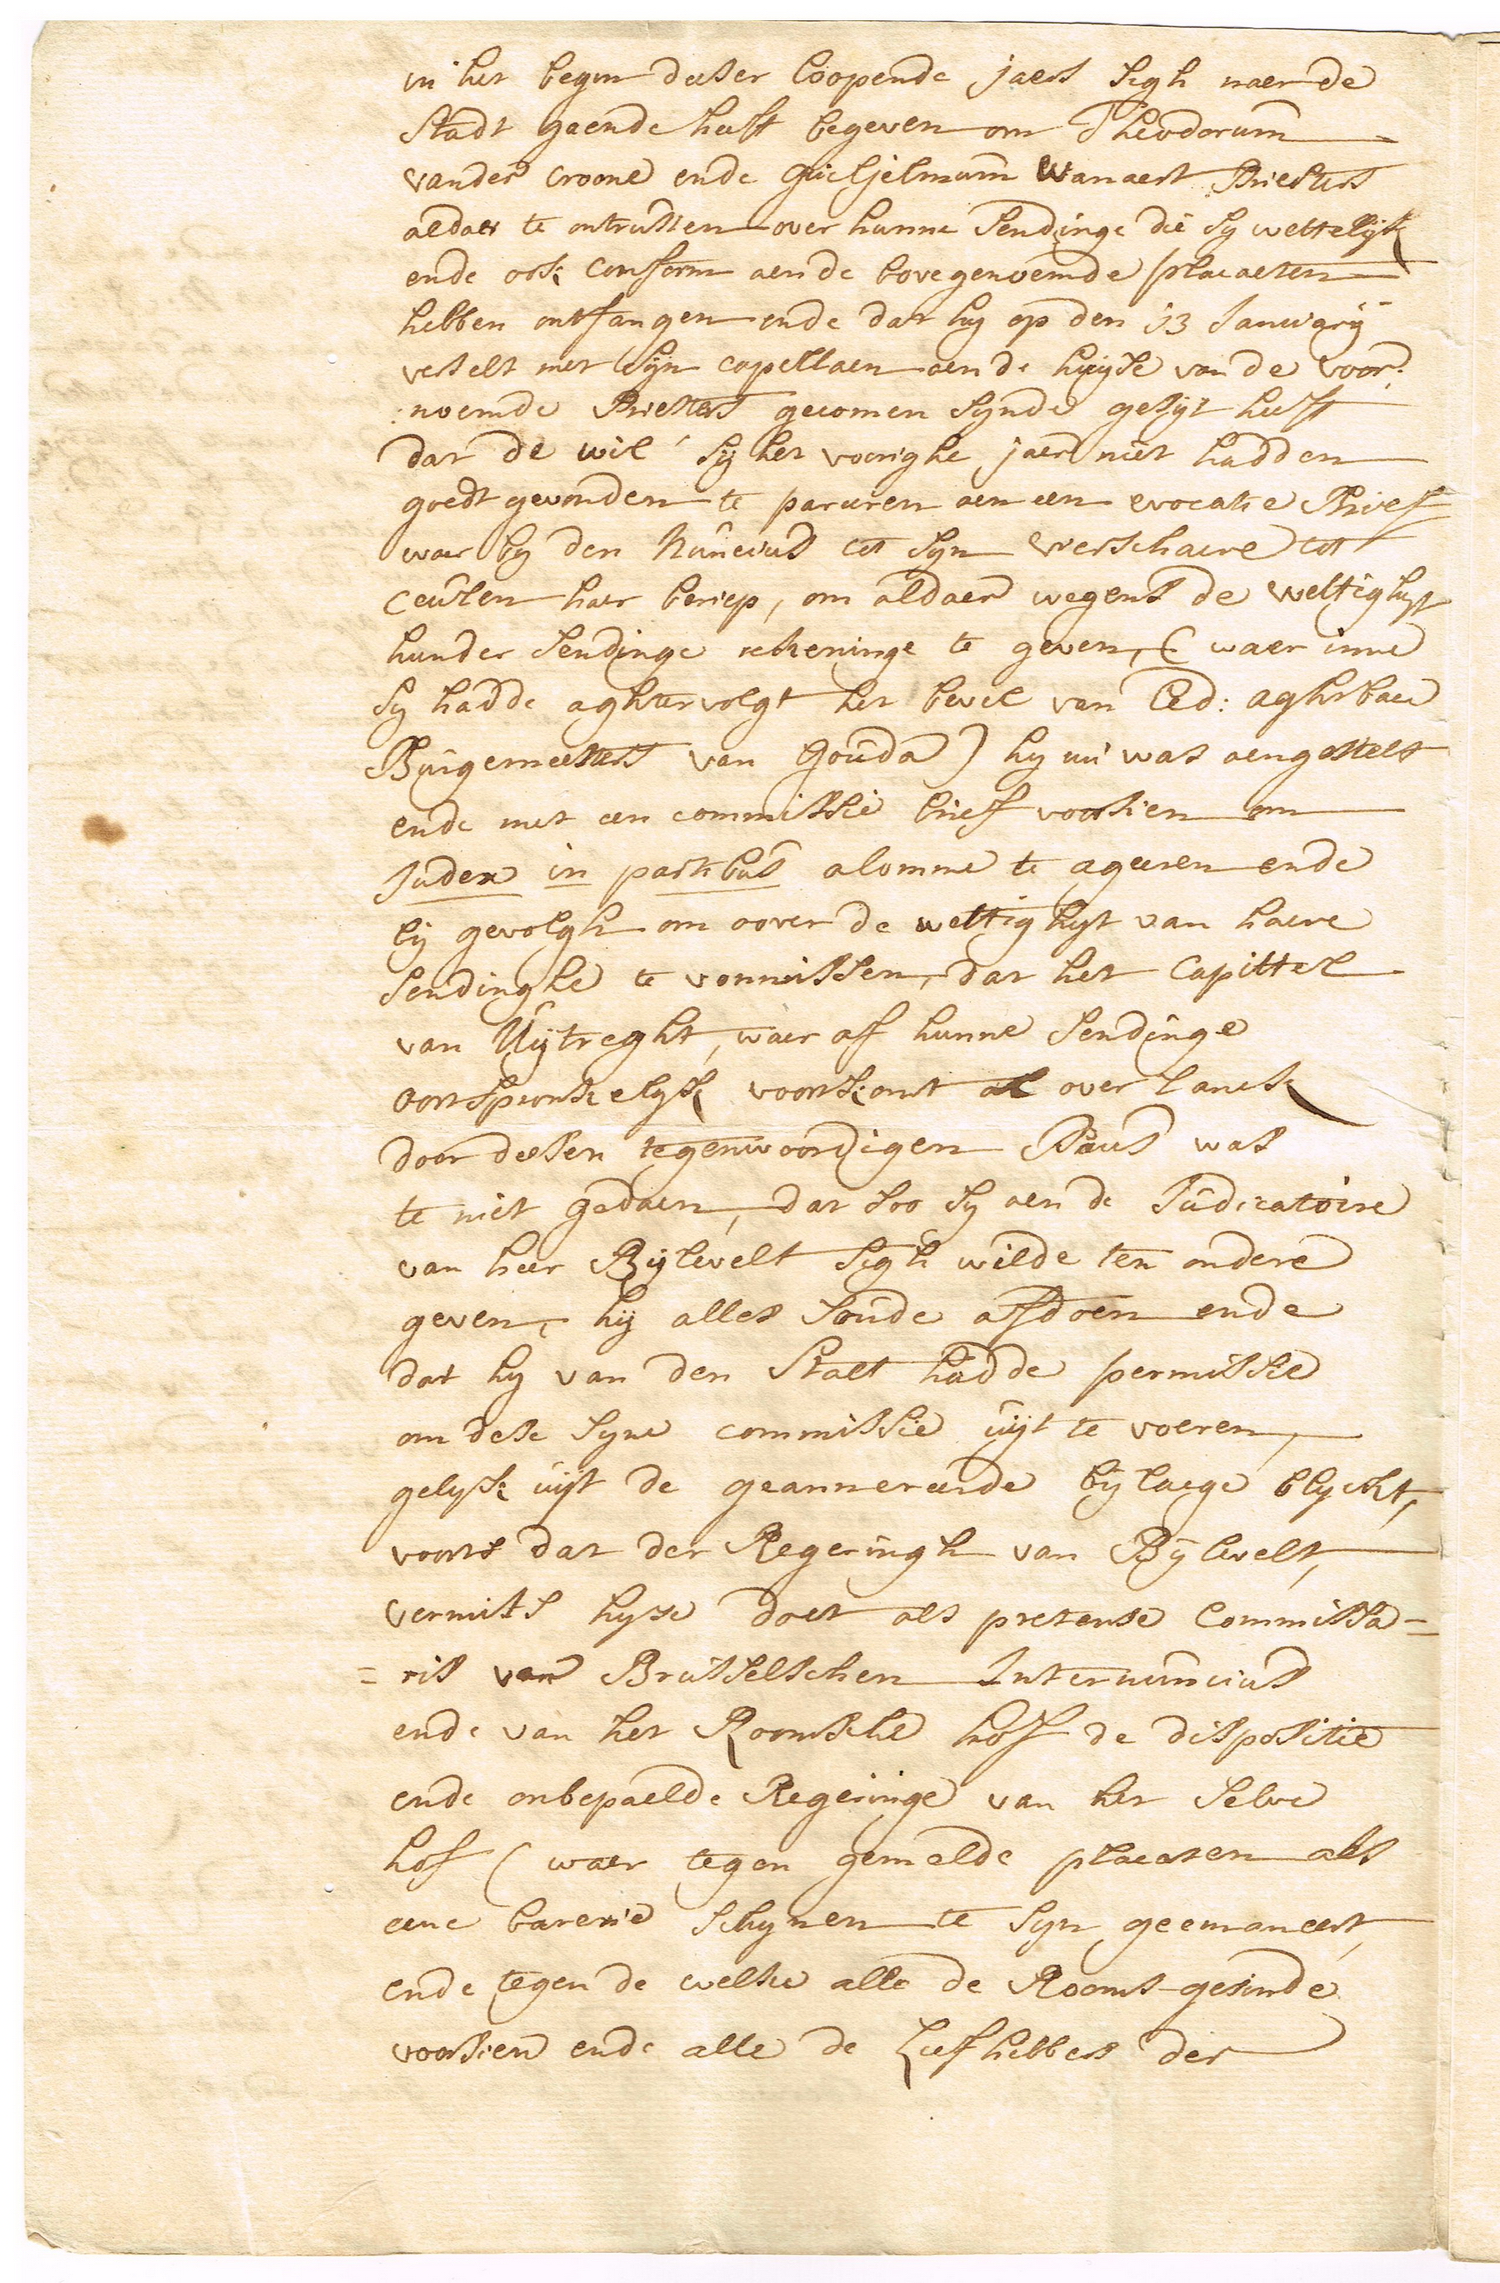 in het begin deeser loopende jaers sigh naer de
Stadt gaende heeft begeven om Theodorum
vander Croone ende Guiljelmum Wanaert Priesters
aldaer te ontrusten over hunne Sendinge die sy wettelijk
ende ook conform aen de bovegenoemde placaeten
hebben ontfangen ende dat hy op den 13 Januwarij
verselt met sijn capellaen aen de huijse van de voor:
:noemde Priesters gecomen synde geseijt heeft
dat de wil sij het voorighe jaer niet hadden
goedt gevonden te pareren aen een evocatie Brief
waer by den Nuncius tot syn vierschaere tot
Ceulen haer beriep, om aldaer wegens de wettigheyt
hunder Sendinge rekeninge te geven, (waer inne
sy hadde aghtervolgt het bevel van Ed: aghtbaere
Burgemeesters van Gouda) hy nu was aengestelt
ende met een commissie brief voorsien om
Judex in partibus alomme te ageeren ende
bij gevolgh om oover de wettigheyt van haere
Sendinghe te vonnissen, dat het Capittel
van Uijtreght, waer af hunne Sendinge
oorspronkelijk voortkomt al over lanck
door deesen tegenwoordigen Paus was
te niet gedaen, dat soo sy aen de Judicatoire
van heer Bijlevelt sigh wilde ten ondere
geven, hij alles soude afdoen ende
dat hy van den Staet hadde permissie
om dese syne commissie uijt te voeren,
gelyk uijt de geannexeerde bijlaege blyckt,
voorts dat der Regeringh van Bijlevelt,
vermits hyse doet als pretense Commissa=
=ris van Brusselschen Internuncius
ende van het Roomsche hof de dispositie
ende onbepaelde Regeringe van het selve
hof (waer tegen gemelde placaten als
eene barerie schynen te syn geemaneert,
ende tegen de welke alle de Rooms-gesinde
voorsien ende alle de Liefhebbers der